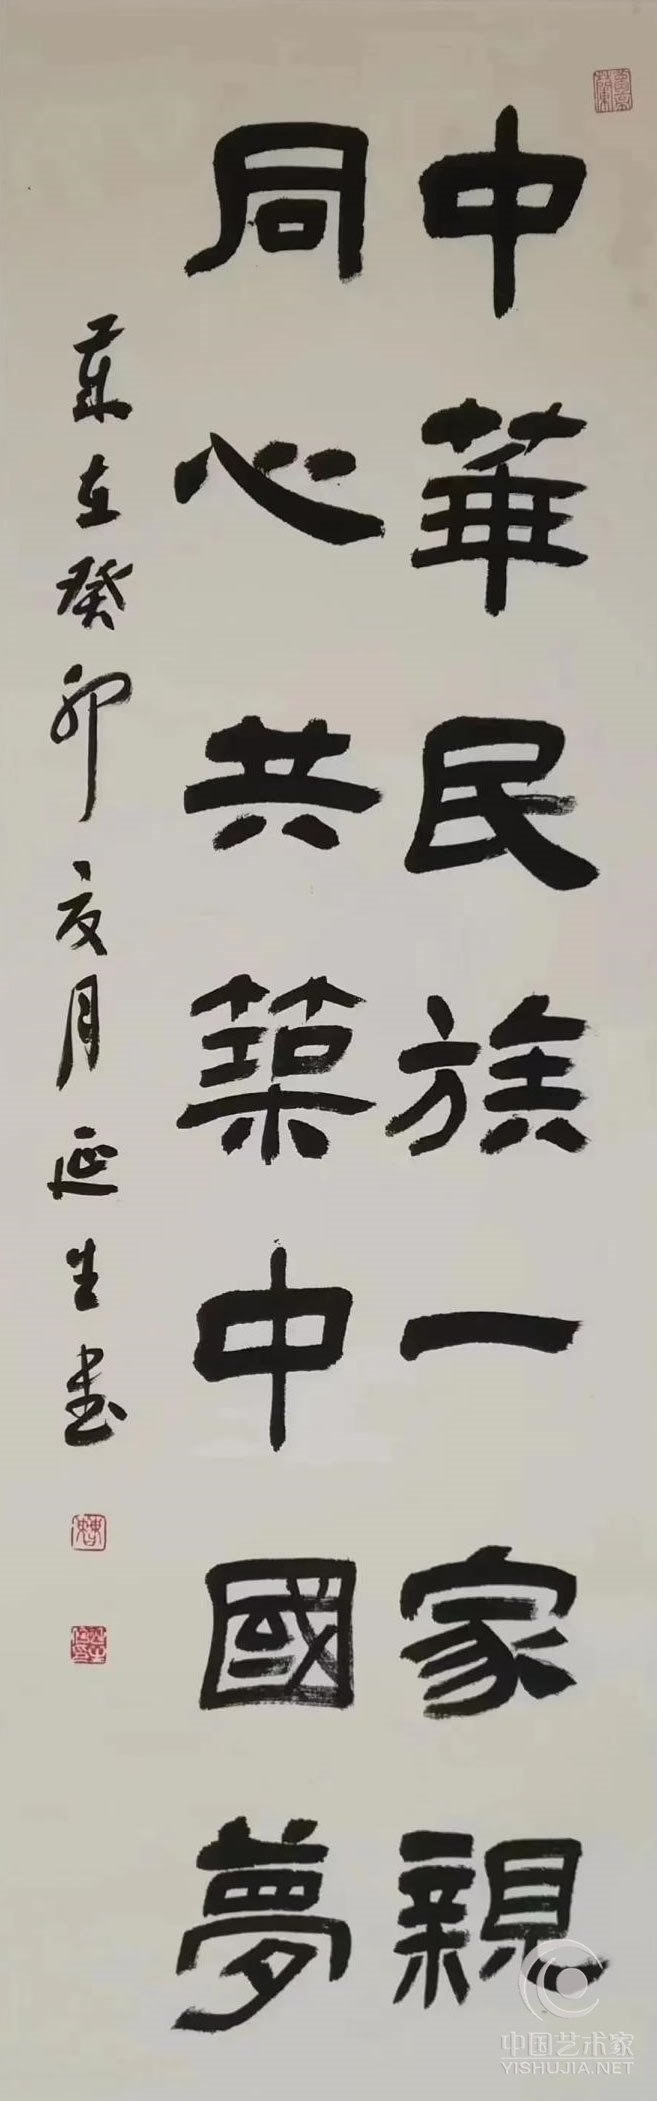 中華民族一家親
同心共築中國夢
歲在癸卯夏月延生書
中国艺术家
YISHUJIA.NET